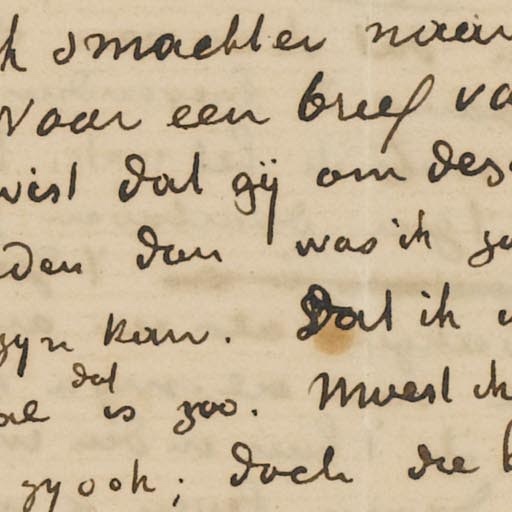 k smachten naar
Naar een brief va
wist dat gij om des
den dan was ik zo
zyn kan. Dat ik u
dat
al is zoo. Moest ik
zy ook; doch die b